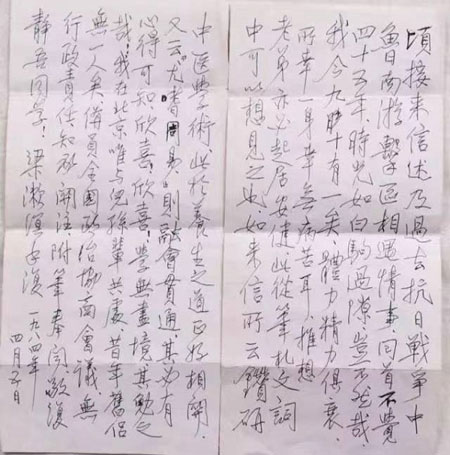 頃接来信述及過去抗日戰爭中
魯南游擊區相遇情事,回首不覺
四十五年,時光如白駒過隙,豈不然哉.
我今九十有一矣,體力精力俱衰,
所幸一身幸無病苦耳.推想
老弟亦必起居安健,此從筆札文詞
中可以想見之也.如来信所云鑽研
中医學術,此於養生之道正好相關.
又云"尤嗜周易"則融會貫通其必有
心得可知,欣喜欣喜.學無盡境,其勉之
哉!我在北京唯与兒孫輩共處,昔年舊侣
無一人矣.備員全國政治協商會議,無
行政責任.知承関注,附筆奉聞.敬復
靜吾同学! 梁漱溟手復
一九八四年
四月 日